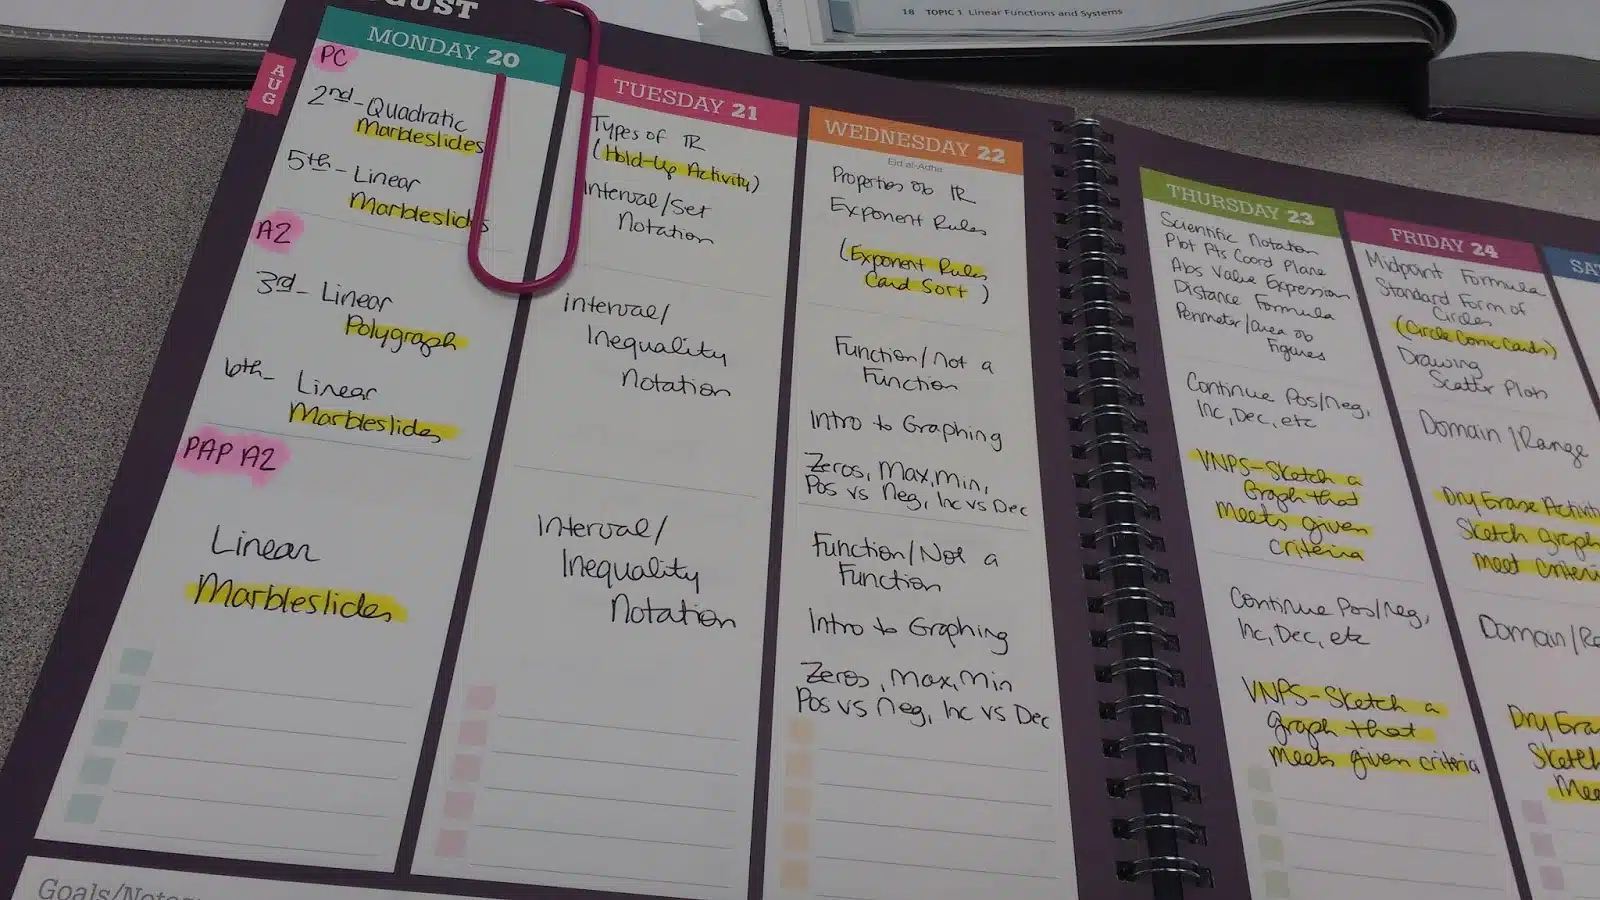 18 TOPIC 1 Linear Functions and Systems
GUST
AUG
MONDAY 20
PC
2nd - Quadratic
Marbleslides
5th - Linear
Marbleslides
A2
3rd - Linear
Polygraph
6th - Linear
Marbleslides
PAP A2
Linear
Marbleslides
Goals/Notes
TUESDAY 21
Types of ℝ
(Hold-Up Activity)
Interval/Set
Notation
Interval/
Inequality
Notation
Interval/
Inequality
Notation
WEDNESDAY 22
Eid al-Adha
Properties of ℝ
Exponent Rules
(Exponent Rules
Card Sort)
Function/Not a
Function
Intro to Graphing
Zeros, Max, Min,
Pos vs Neg, Inc vs Dec
Function/Not a
Function
Intro to Graphing
Zeros, Max, Min
Pos vs Neg, Inc vs Dec
THURSDAY 23
Scientific Notation
Plot Pts Coord Plane
Abs Value Expression
Distance Formula
Perimeter/Area of
Figures
Continue Pos/Neg,
Inc, Dec, etc
VNPS - Sketch a
Graph that
meets given
criteria
Continue Pos/Neg,
Inc, Dec, etc
VNPS - Sketch a
graph that
meets given criteria
FRIDAY 24
Midpoint Formula
Standard Form of
Circles
(Circle Conic Cards)
Drawing
Scatter Plots
Domain/Range
Dry Erase Activit
Sketch graph
meet criteri
Domain/Ra
Dry Era
Sketch
Mee
SAT